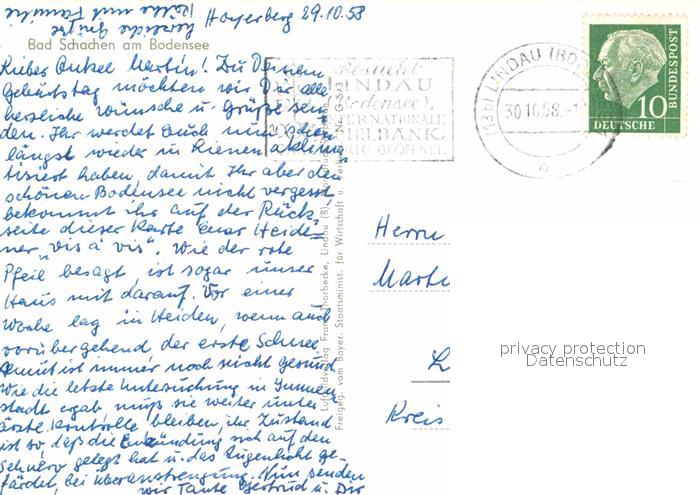 Hoyerberg 29.10.58
Bad Schachen am Bodensee
Lieber Onkel Martin! Zu Deinem
Geburtstag möchten wir Dir alle
herzliche Wünsche u. Grüße sen-
den. Ihr werdet Euch nun schon
längst wieder in Rienen aklima-
tisiert haben, damit Ihr aber den
schönen Bodensee nicht vergesst,
bekommt ihr auf der Rück-
seite dieser Karte euer Heide-
ner "vis à vis". Wie der rote
Pfeil besagt, ist sogar unser
Haus mit darauf. Vor einer
Woche lag in Heiden, wenn auch
vorübergehend, der erste Schnee.
ist immer noch nicht gesund.
Wie die letzte Untersuchung in
stadt ergab, muß sie weiter unter
ärztl. Kontrolle bleiben, ihr Zustand
ist so, daß die Entzündung sich auf den
Sehnerv gelegt hat u. das Augenlicht ge-
färdet, bei Überanstrengung. Nun senden
wir Tante Gertrud u. Dir
herzliche Grüße
und Familie
Besucht
LINDAU
(Bodensee),
INTERNATIONALE
SPIELBANK,
GEÖFFNET.
(13b) LINDAU (BOD
30.10.58.-1
DEUTSCHE
BUNDESPOST
10
Lindau (B)
Freigeg. vom Bayer. Staatsminist. für Wirtschaft u. Verk. Nr. G 5/3
Herrn
Marti
L
Kreis
privacy protection
Datenschutz